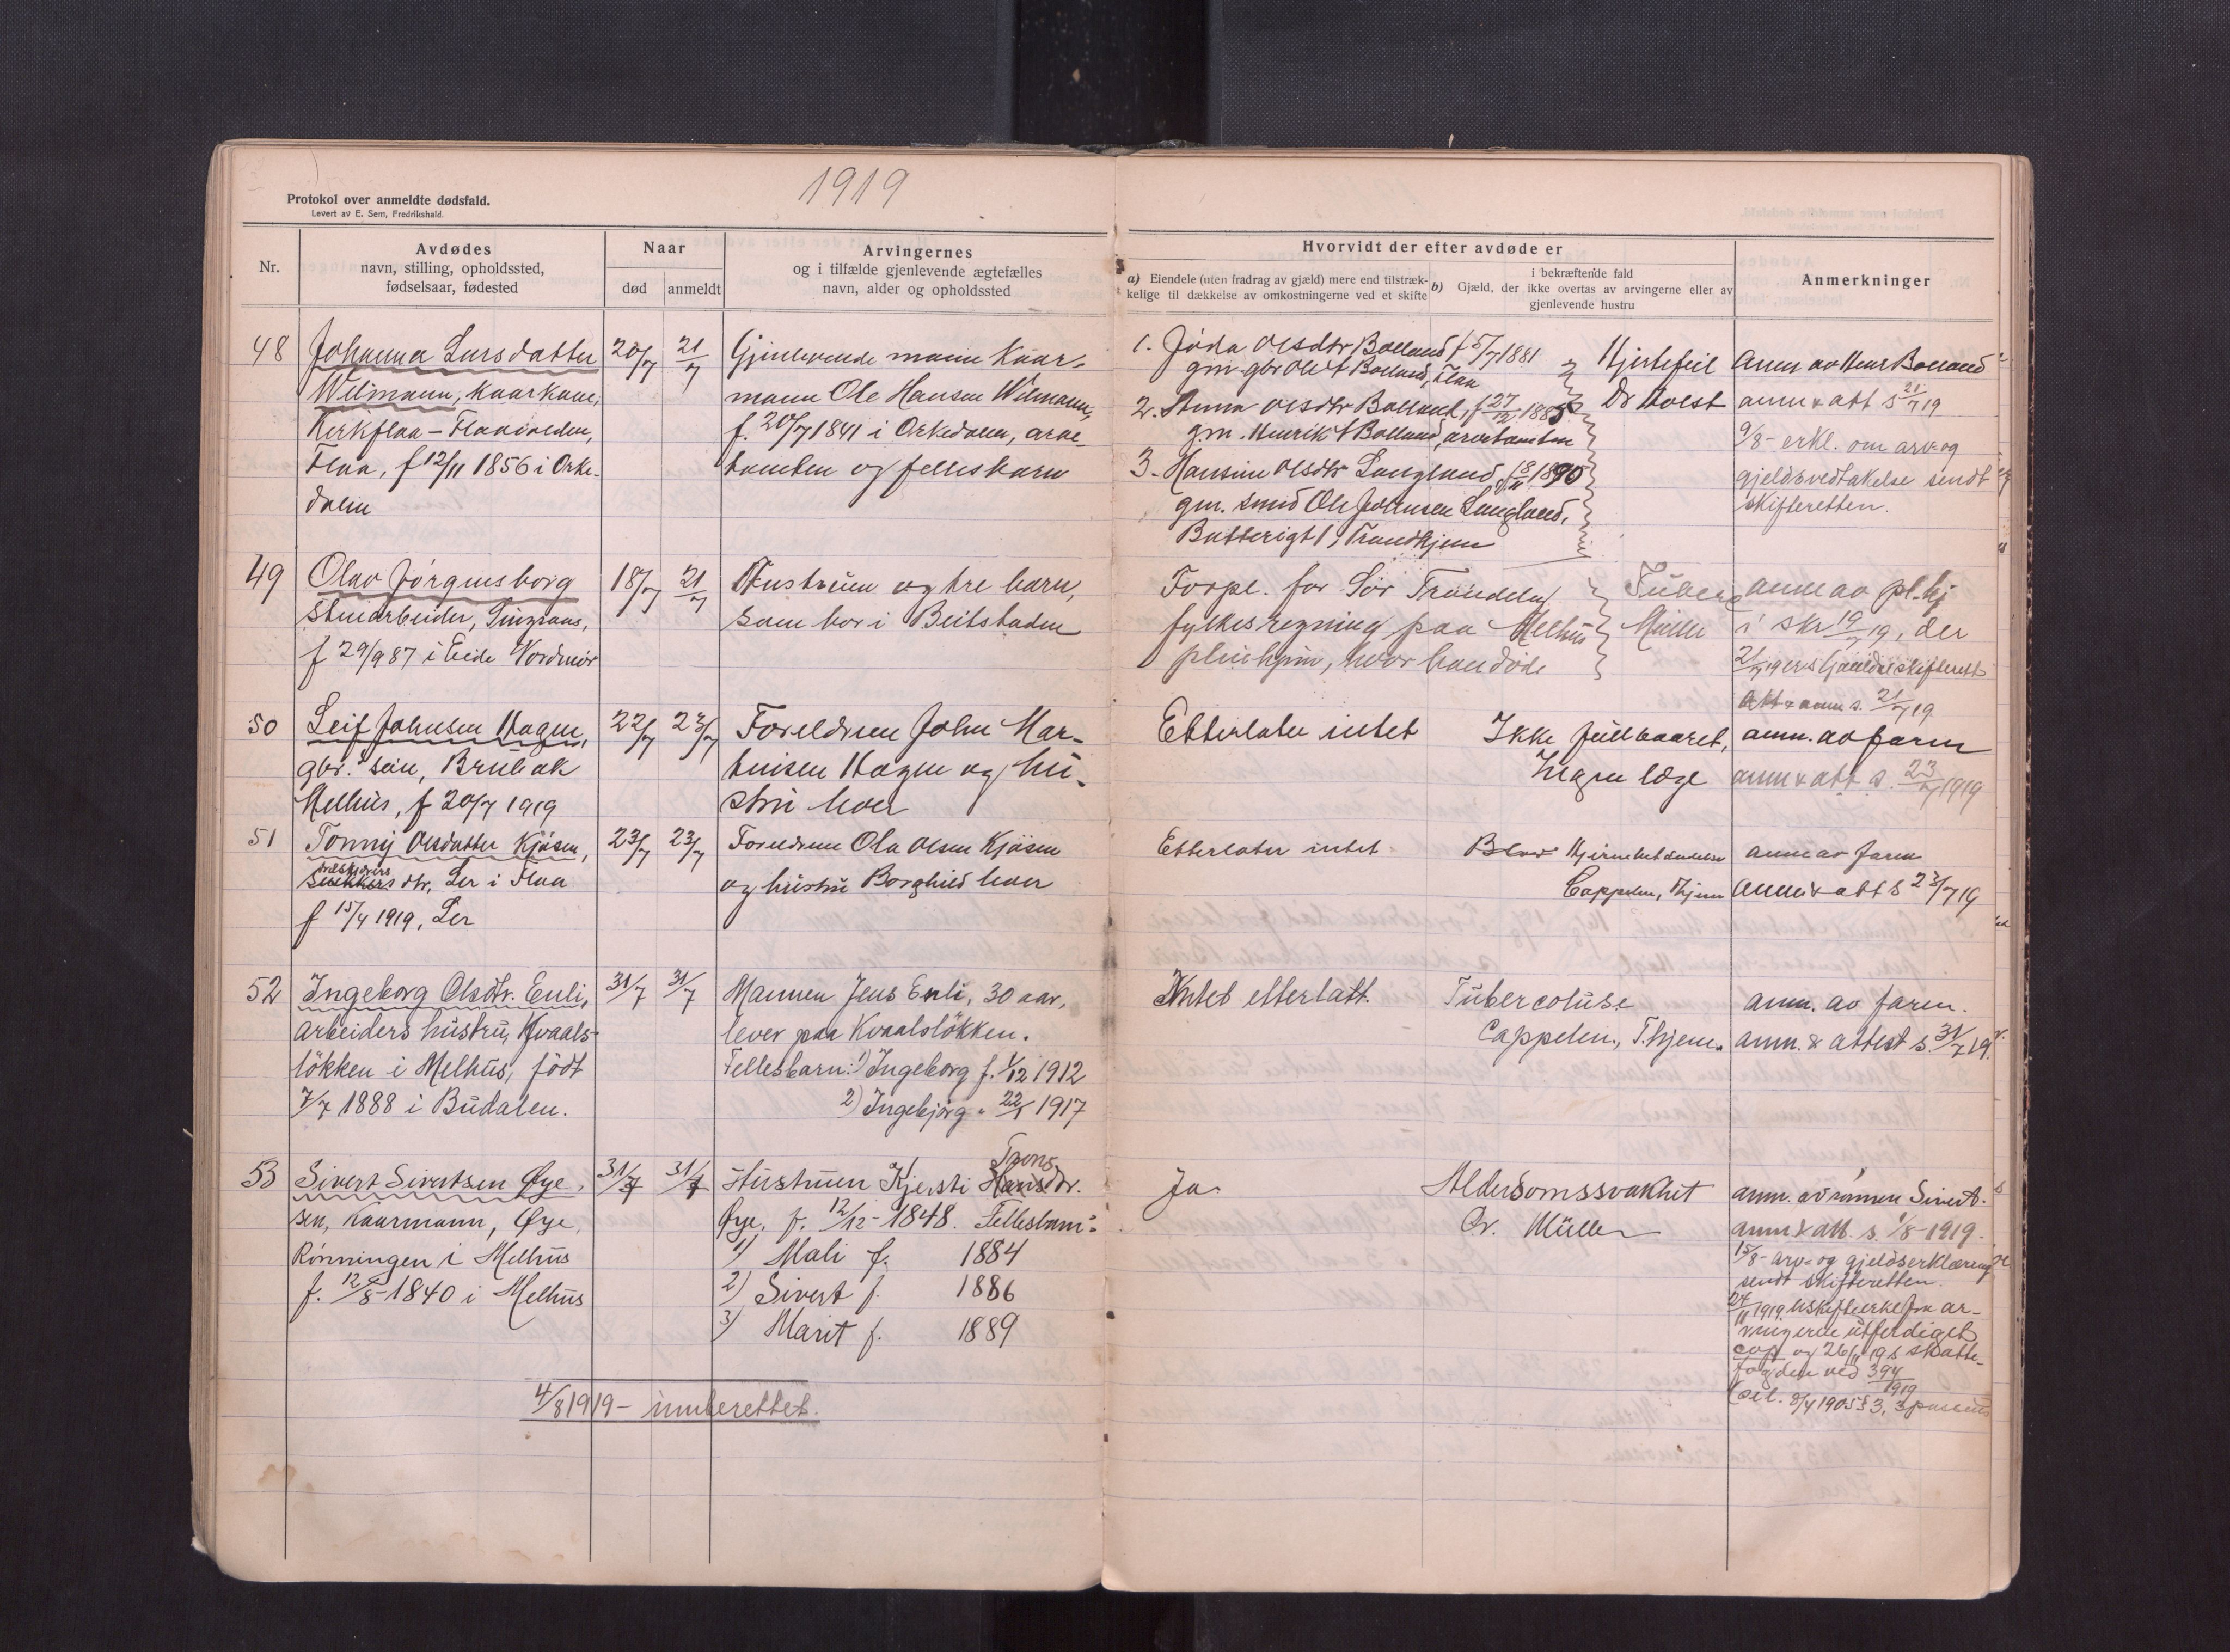 1919
Protokol over anmeldte dødsfald.
Levert av E. Sem, Fredrikshald.
Nr.
Avdødes
navn, stilling, opholdssted,
fødselsaar, fødested
Naar
død anmeldt
Arvingernes
og i tilfælde gjenlevende ægtefælles
navn, alder og opholdssted
Hvorvidt der efter avdøde er
a) Eiendele (uten fradrag av gjæld) mere end tilstræk-
kelige til dækkelse av omkostningerne ved et skifte
i bekræftende fald
b) Gjæld, der ikke overtas av arvingerne eller av
gjenlevende hustru
Anmerkninger
48
Johanna Larsdatter
Wilmann, kaarkone,
Kirkflaa -
Flaa, f 12/11 1856 i Orke-
dalen
20/7
21/7
Gjenlevende mann Kaar-
mann Ole Hansen Wilmann,
f. 20/7 1841 i Orkedalen, 
tomten og felleskarn
1. Olsdtr Bolland f 5/7 1881
gm. gbr Ole Bolland, Flaa
2. Anna Olsdtr Bolland, f 27/12 1885
gm. Henrik Bolland,
3. Hansine Olsdtr Langland, 1890
gm. smed Ole Johnsen Langland,
Butterigt 1, Trondhjem
Hjertefeil
Dr Holst
Anm av Henr Bolland
anm & att s 21/7 19
9/8 - erkl. om arv- og
gjeldsvedtakelse sendt
skifteretten.
49
Olav Jörgensborg
stenarbeider,
f 29/9 87 i Eide Nordmör
18/7
21/7
Hustruen og tre barn,
som bor i Beitstaden
Forpl. for Sör Tröndelag
fylkes regning paa Melhus
pleiehjem, hvor han döde
Müller
anm av pl.hj
i skr 19/7 19, der
21/7 19
Att & anm s. 21/7 19
50
Leif Johnsen Hagen,
gbr. sön, Brubak
Melhus, f 20/7 1919
22/7
23/7
Foreldrene John Mar-
tinsen Hagen og hu-
stru
Etterlater intet
Ikke fullbaaret,
Ingen læge
anm. av faren
anm & att s. 23/7 1919
51
Tonny Olsdatter Kjösen,
dtr, Ler i Flaa
f 15/4 1919, Ler
23/7
23/7
Foreldrene Ola Olsen Kjösen
og hustru Borghild
Etterlater intet
Hjernebetændelse
Cappelen, Thjem
anm av faren
Anm & att s 23/7 19
52
Ingeborg Olsdtr. Enli,
arbeiders hustru, Kvaals-
lökken i Melhus, födt
7/7 1888 i Budalen.
31/7
31/7
Mannen Jens Enli, 30 aar,
lever paa Kvaalslökken.
Fellesbarn: 1) Ingeborg f. 1/12 1912
2) Ingebjörg " 22/1 1917
Intet etterlatt.
Tuberculuse
Cappelen, T.hjem.
anm. av faren.
anm. & attest s. 31/7 19.
53
Sivert Sivertsen Øye,
kaarmann, Øye,
Rönningen i Melhus
f. 12/8 - 1840 i Melhus
31/7
31/7
Hustruen Kjersti Hansdtr.
Øye, f. 12/12 - 1848. Fellesbarn:
1) Mali f. 1884
2) Sivert f. 1886
3) Marit f. 1889
Ja
Aldersomssvakhet
Dr. Müller
anm. av sönnen Sivert.
anm & att. s. 1/8 - 1919.
15/8 - arv- og gjeldserklæring
sendt skifteretten.
24/11 1919 fra ar-
vingerne utferdiget
cop og 26/11 19 s skatte-
fogden ved 394/1919
8/4 1905 § 3, 3
4/8 1919 - innberettet.